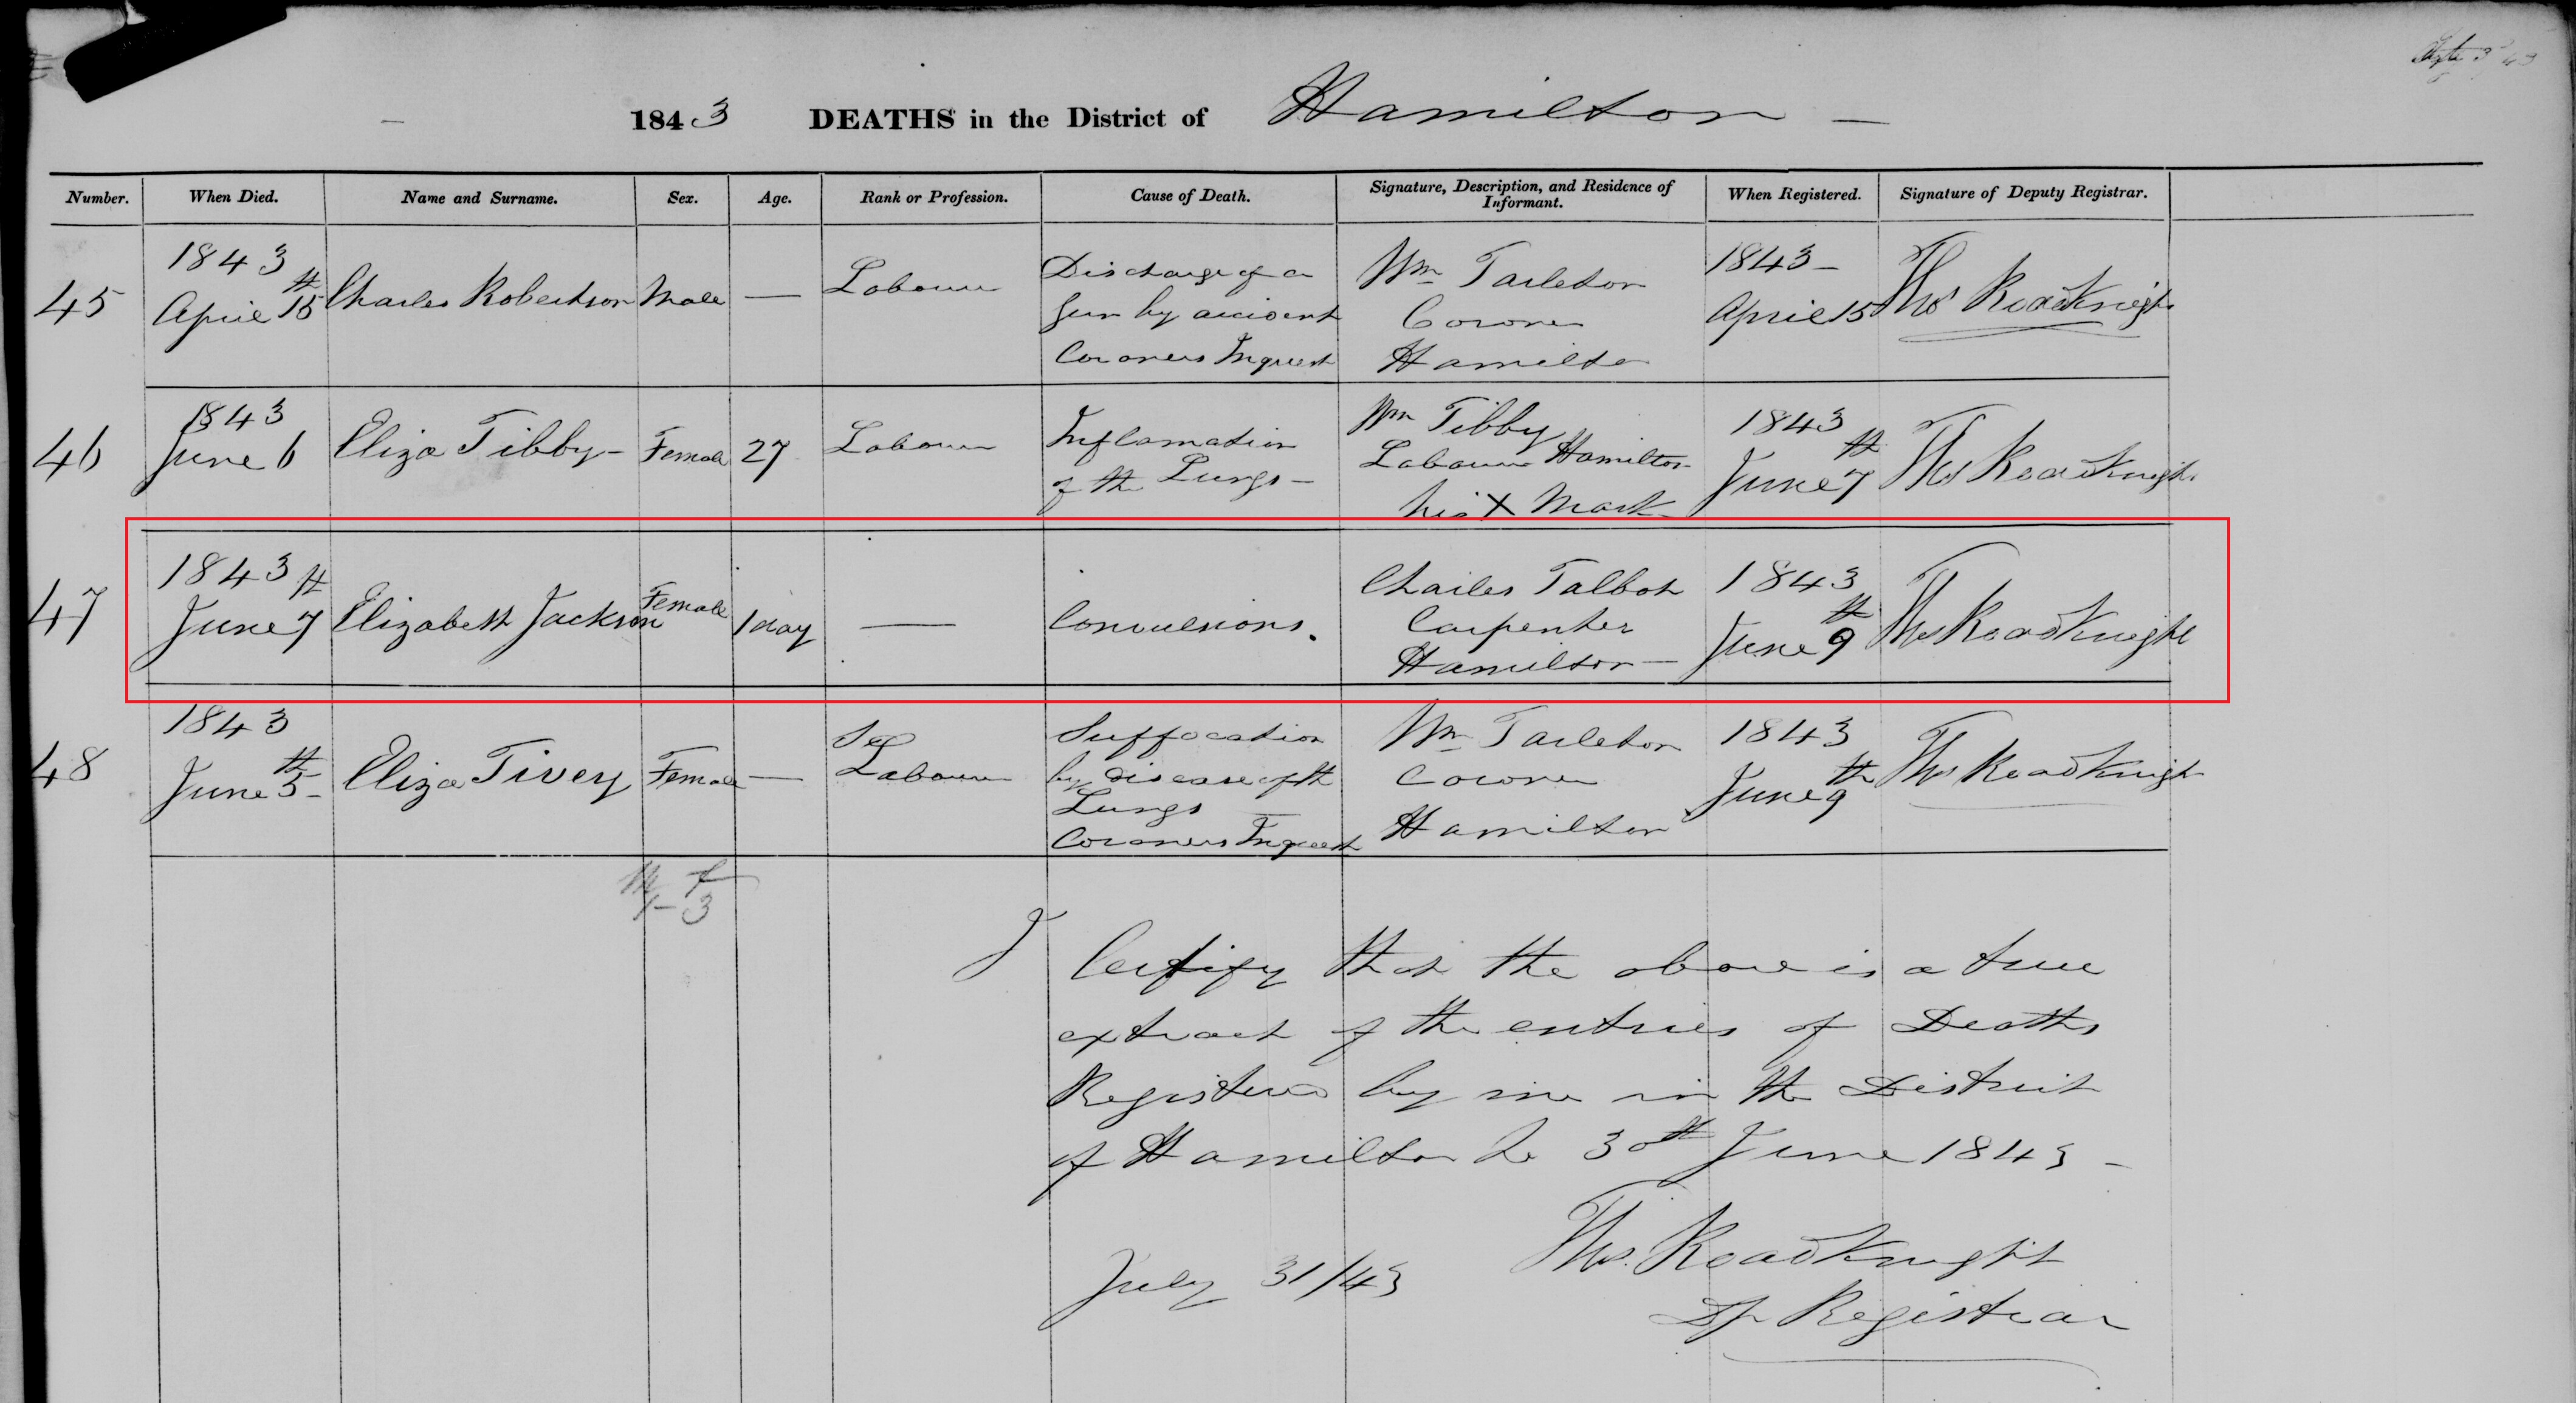 1843 DEATHS in the District of Hamilton —
Number. When Died. Name and Surname. Sex. Age. Rank or Profession. Cause of Death. Signature, Description, and Residence of Informant. When Registered. Signature of Deputy Registrar.
45 1843 April 15th Charles Robertson Male — Labourer Discharge of a Gun by accident Coroners Inquest Wm Tarleton Coroner Hamilton 1843 – April 15 Thos Roadknight
46 1843 June 6 Eliza Tibby – Female 27 Labourer Inflamation of the Lungs – Wm Tibby Labourer Hamilton his X Mark 1843 June 7th Thos Roadknight
47 1843 June 7th Elizabeth Jackson Female 1 day — Convulsions. Charles Talbot Carpenter Hamilton — 1843 June 9th Thos Roadknight
48 1843 June 5th – Eliza Tivey Female — Labourer Suffocation by disease of the Lungs — Coroners Inquest Wm Tarleton Coroner Hamilton 1843 June 9th Thos Roadknight
M F
1 – 3
I Certify that the above is a true
extract of the entries of Deaths
Registered by me in the District
of Hamilton to 30th June 1843 –
July 31/43 Thos. Roadknight
Dp Registrar